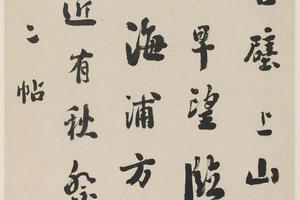 壁上山
早望臨
海浦方
近有秋祭
二帖